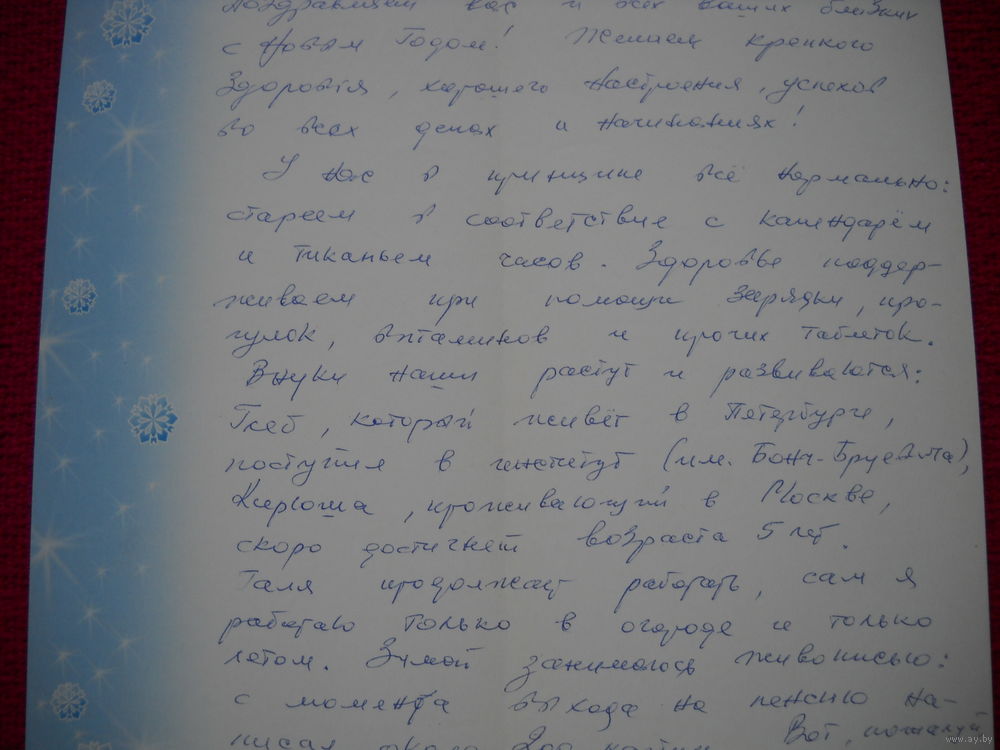 Поздравляем вас и всех ваших близких
с Новым Годом! Желаем крепкого
здоровья, хорошего настроения, успехов
во всех делах и начинаниях!
У нас в принципе всё нормально:
стареем в соответствие с календарём
и тиканьем часов. Здоровье поддер-
живаем при помощи зарядки, про-
гулок, витаминов и прочих таблеток.
Внуки наши растут и развиваются:
Глеб, который живёт в Петербурге,
поступил в институт (им. Бонч-Бруевича),
Кирюша, проживающий в Москве,
скоро достигнет возраста 5 лет.
Галя продолжает работать, сам я
работаю только в огороде и только
летом. Зимой занимаюсь живописью:
с момента выхода на пенсию на-
писал около 200 картин. Вот, пожалуй
www.ay.by